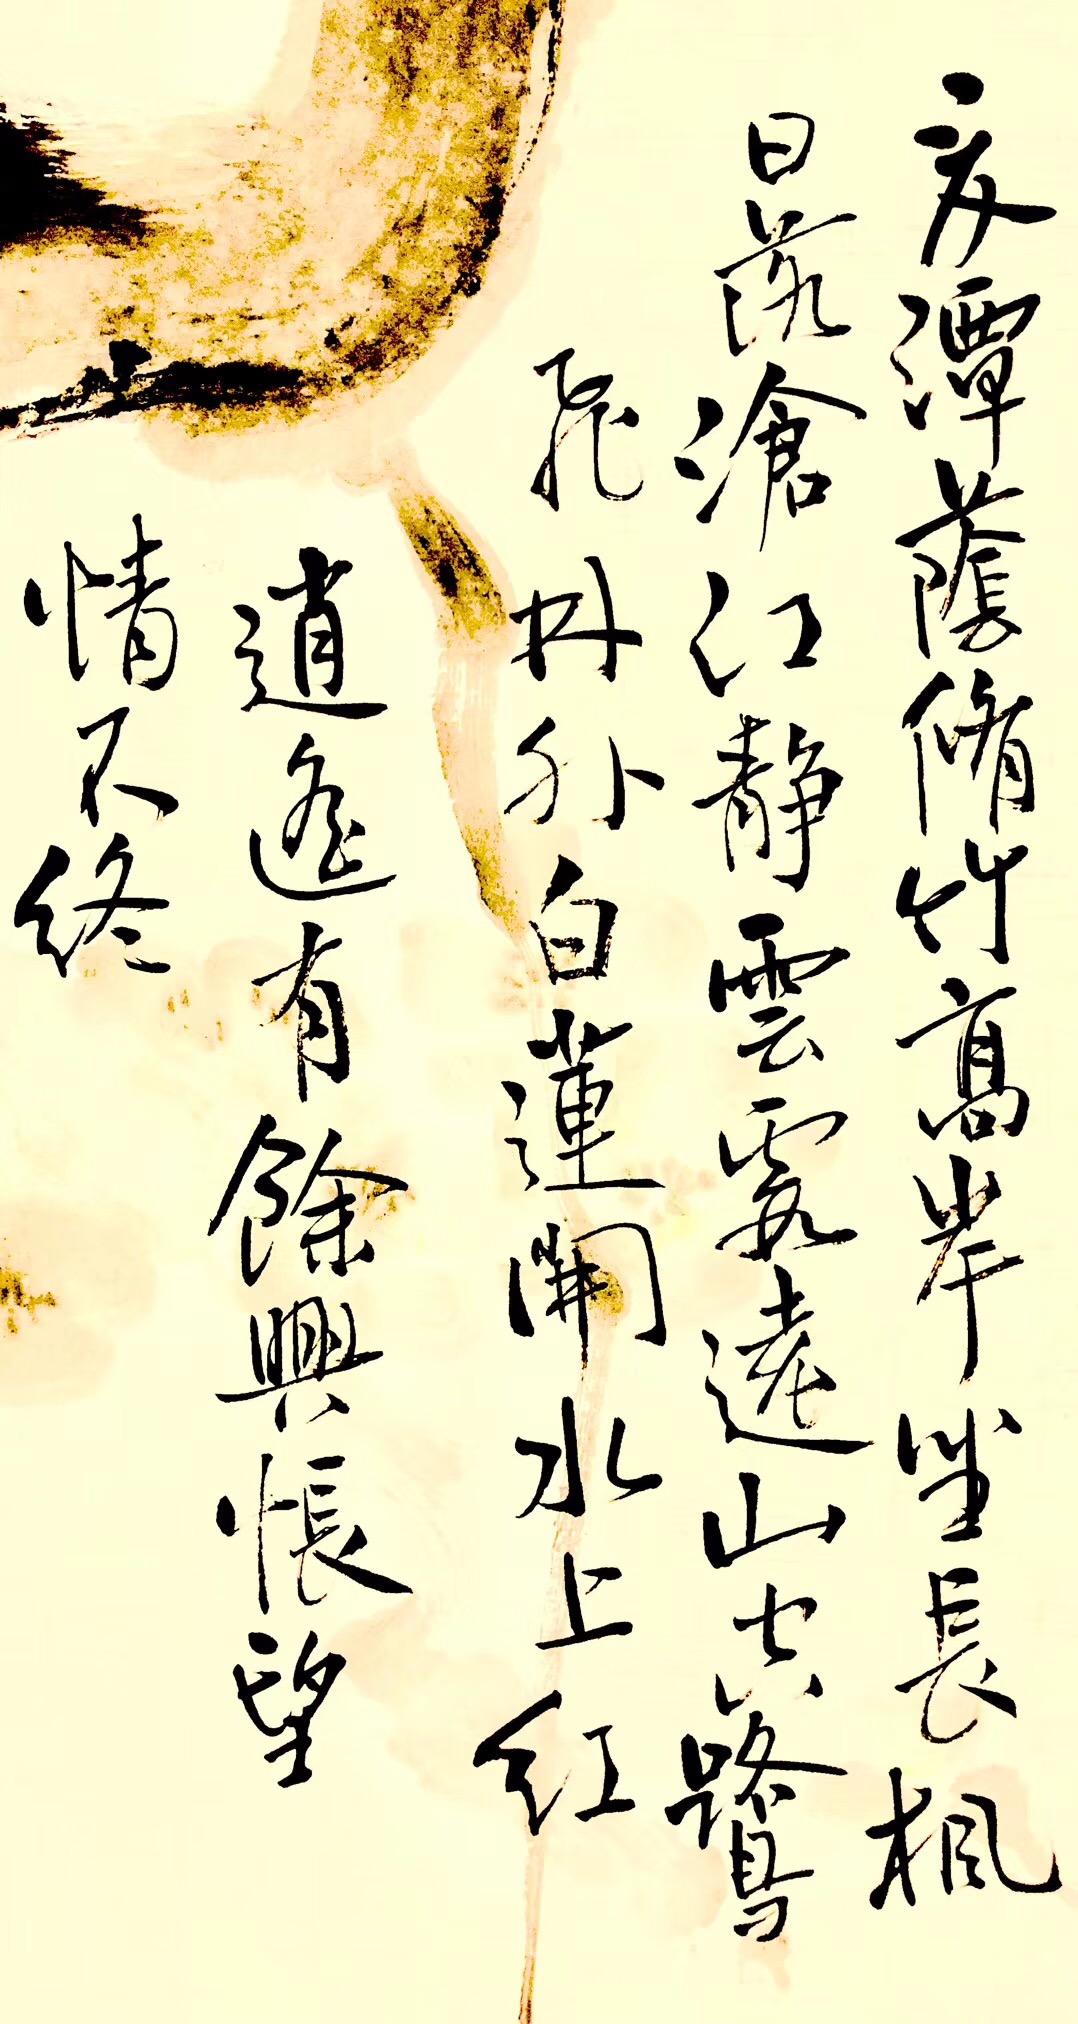 夏潭蔭脩竹高岸坐長楓
日落滄江静雲霞遠山空鷺
飛林外白蓮開水上紅
逍遙有餘興悵望
情不終